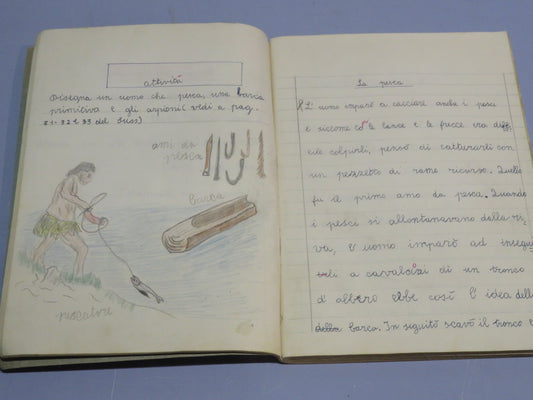 attività
Disegna un uomo che pesca, una barca
primitiva e gli arpioni (vedi a pag.
31-32 e 33 del Suss)
ami da
pesca
barca
pescatore
La pesca
L' uomo imparò a cacciare anche i pesci
e siccome co le lance e le frecce era diffi
cile colpirli, pensò di catturarli con
un pezzetto di rame ricurvo. Quello
fu il primo amo da pesca. Quando
i pesci si allontanavano dalla ri
va, l' uomo imparò ad insegui
rli a cavalcioi di un tronco
d' albero ebbe così l' idea della
barca. In seguito scavò il tronco e